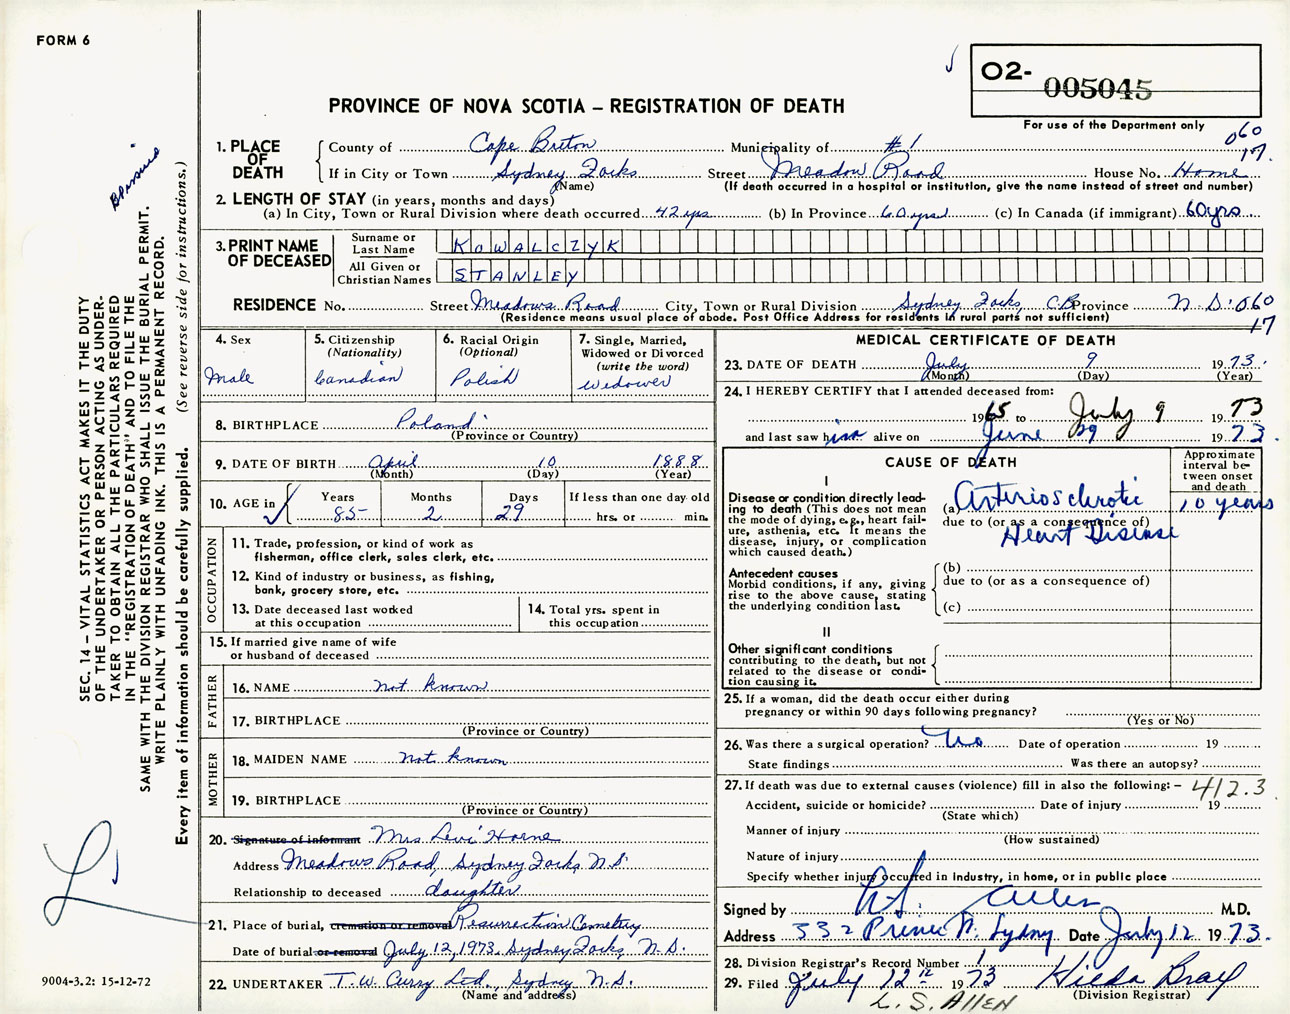 FORM 6
O2-
005045
PROVINCE OF NOVA SCOTIA – REGISTRATION OF DEATH
For use of the Department only
060
17.
1. PLACE OF DEATH
County of Cape Breton Municipality of #1
If in City or Town Sydney Forks Street Meadow Road House No. Home
(Name) (If death occurred in a hospital or institution, give the name instead of street and number)
2. LENGTH OF STAY (in years, months and days)
(a) In City, Town or Rural Division where death occurred 42 yrs (b) In Province 60 yrs (c) In Canada (if immigrant) 60 yrs
3. PRINT NAME OF DECEASED
Surname or Last Name KOWALCZYK
All Given or Christian Names STANLEY
RESIDENCE No. Street Meadows Road City, Town or Rural Division Sydney Forks, C.B Province N.S. 060
17
(Residence means usual place of abode. Post Office Address for residents in rural parts not sufficient)
4. Sex
Male
5. Citizenship (Nationality)
Canadian
6. Racial Origin (Optional)
Polish
7. Single, Married, Widowed or Divorced (write the word)
widower
8. BIRTHPLACE Poland
(Province or Country)
9. DATE OF BIRTH April 10 1888
(Month) (Day) (Year)
10. AGE in Years Months Days If less than one day old
85 2 29 hrs. or min.
OCCUPATION
11. Trade, profession, or kind of work as
fisherman, office clerk, sales clerk, etc.
12. Kind of industry or business, as fishing,
bank, grocery store, etc.
13. Date deceased last worked
at this occupation
14. Total yrs. spent in
this occupation
15. If married give name of wife
or husband of deceased
FATHER
16. NAME not known
17. BIRTHPLACE
(Province or Country)
MOTHER
18. MAIDEN NAME not known
19. BIRTHPLACE
(Province or Country)
20. Signature of informant Mrs Levi Horne
Address Meadows Road, Sydney Forks N.S.
Relationship to deceased daughter
21. Place of burial, cremation or removal Resurrection Cemetery
Date of burial or removal July 12, 1973. Sydney Forks, N.S.
22. UNDERTAKER T.W. Curry Ltd., Sydney N.S.
(Name and address)
MEDICAL CERTIFICATE OF DEATH
23. DATE OF DEATH July 9 1973.
(Month) (Day) (Year)
24. I HEREBY CERTIFY that I attended deceased from:
1965 to July 9 1973
and last saw him alive on June 29 1973.
CAUSE OF DEATH
Approximate interval between onset and death
I
Disease or condition directly leading to death (This does not mean the mode of dying, e.g., heart failure, asthenia, etc. It means the disease, injury, or complication which caused death.)
(a) Arteriosclerotic 10 years
due to (or as a consequence of)
Heart Disease
Antecedent causes
Morbid conditions, if any, giving rise to the above cause, stating the underlying condition last.
(b)
due to (or as a consequence of)
(c)
II
Other significant conditions
contributing to the death, but not related to the disease or condition causing it.
25. If a woman, did the death occur either during
pregnancy or within 90 days following pregnancy?
(Yes or No)
26. Was there a surgical operation? No Date of operation 19
State findings Was there an autopsy?
27. If death was due to external causes (violence) fill in also the following: – 412.3
Accident, suicide or homicide? Date of injury 19
(State which)
Manner of injury
(How sustained)
Nature of injury
Specify whether injury occurred in industry, in home, or in public place
Signed by Allen M.D.
Address 332 Prince St. Sydney Date July 12 1973.
28. Division Registrar's Record Number 1
29. Filed July 12th 1973 Hilda Bray
(Division Registrar)
L. S. ALLEN
SEC. 14 – VITAL STATISTICS ACT MAKES IT THE DUTY
OF THE UNDERTAKER OR PERSON ACTING AS UNDER-
TAKER TO OBTAIN ALL THE PARTICULARS REQUIRED
IN THE "REGISTRATION OF DEATH" AND TO FILE THE
SAME WITH THE DIVISION REGISTRAR WHO SHALL ISSUE THE BURIAL PERMIT.
WRITE PLAINLY WITH UNFADING INK. THIS IS A PERMANENT RECORD.
Every item of information should be carefully supplied. (See reverse side for instructions.)
9004-3.2: 15-12-72